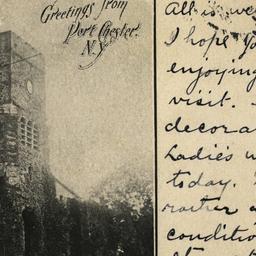 Greetings from
Port Chester.
N.Y.
All is we
I hope yo
enjoying
visit.
decora
Ladies w
today.
rather a
conditio